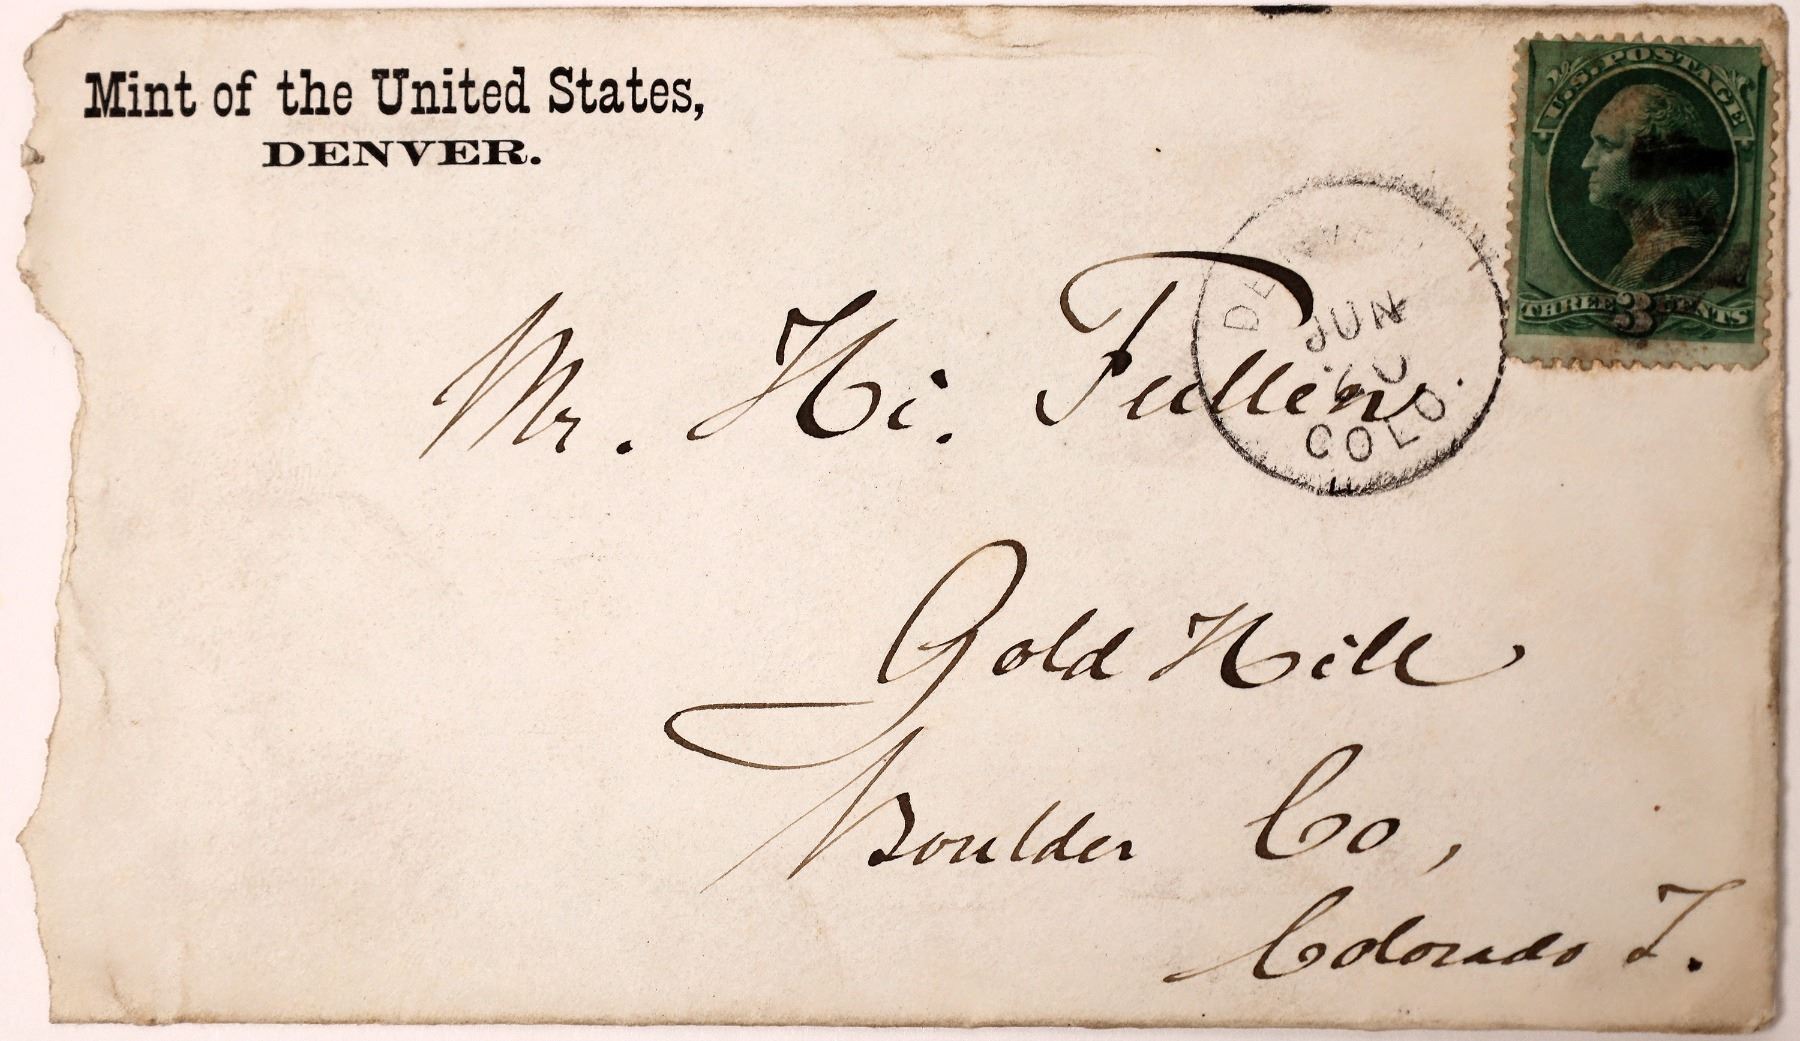 Mint of the United States,
DENVER.
U.S. POSTAGE
THREE 3 CENTS
DENVER
JUN
COLO.
Mr. Hi. Fullen
Gold Hill
Boulder Co,
Colorado T.